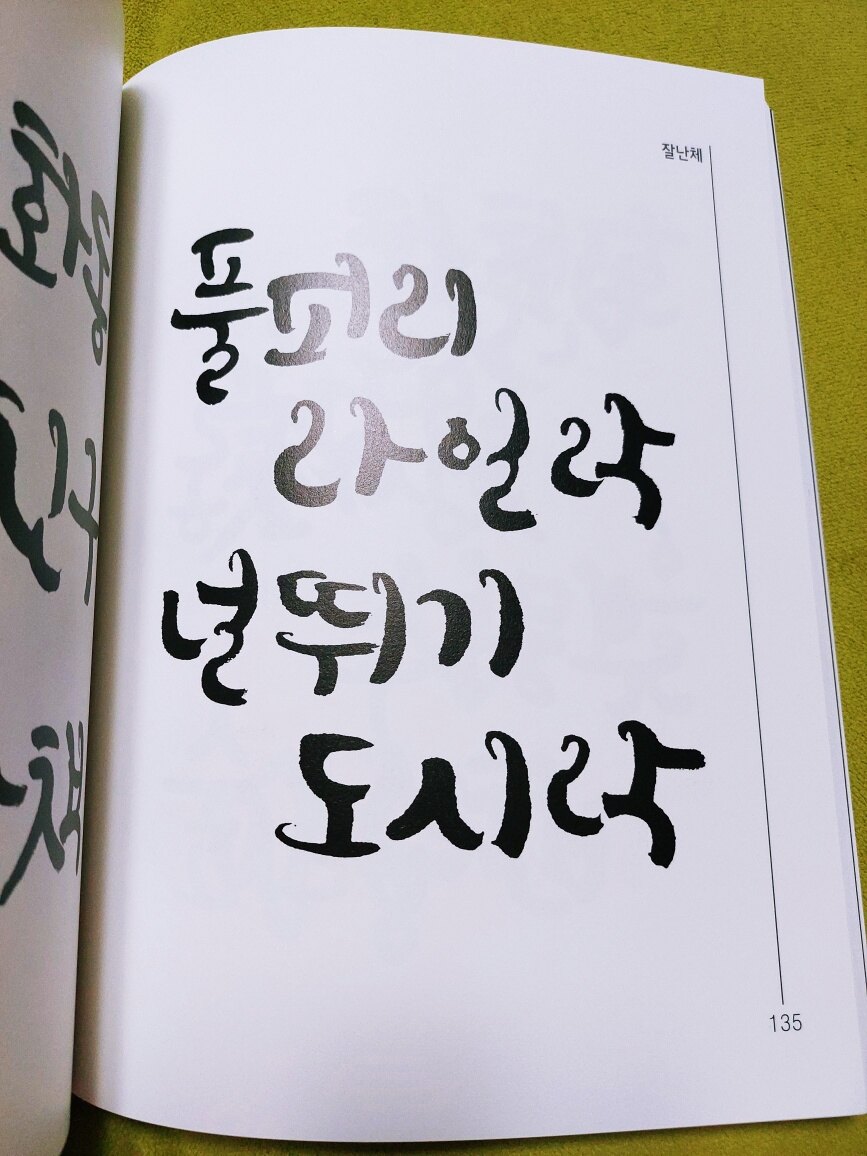 잘난체
풀피리
라일락
널뛰기
도시락
135